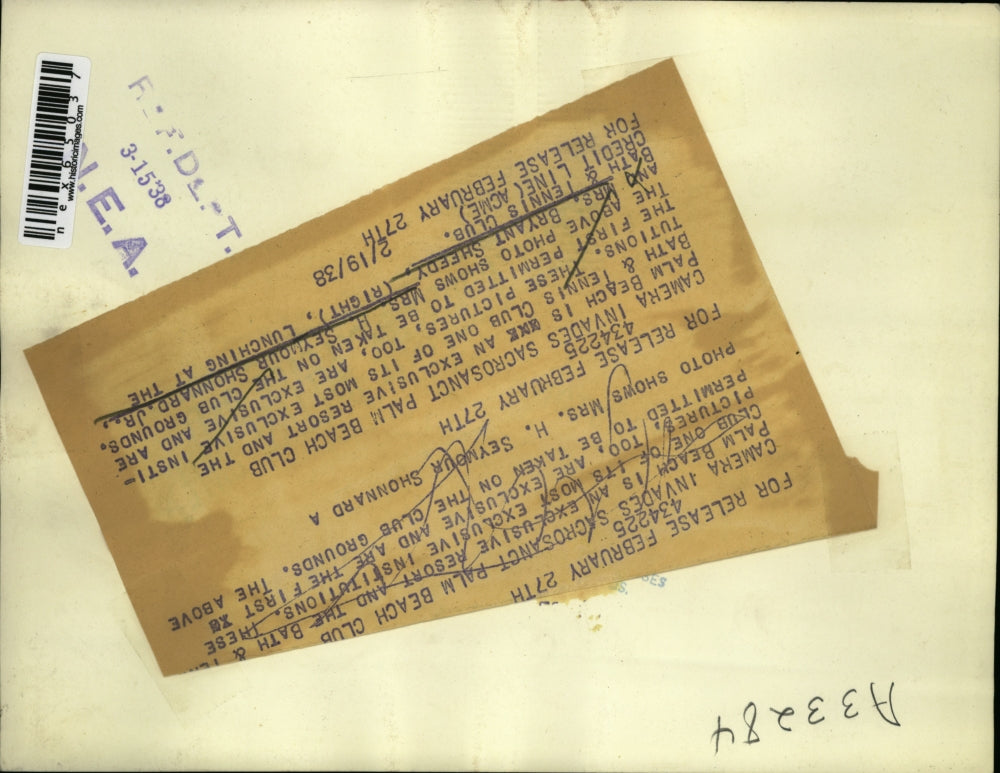 nex65037
www.historicimages.com
REF. DEPT.
3-15-38
N.E.A.
FOR RELEASE FEBRUARY 27TH
434225
CAMERA INVADES SACROSANCT PALM BEACH CLUB
PALM BEACH IS AN EXCLUSIVE RESORT AND THE BATH &
CLUB ONE OF ITS MOST EXCLUSIVE INSTITUTIONS. THESE
PICTURES, TOO, ARE EXCLUSIVE AND ARE THE FIRST
PERMITTED TO BE TAKEN ON THE CLUB GROUNDS. THE ABOVE
PHOTO SHOWS MRS. H. SEYMOUR SHONNARD A
FOR RELEASE FEBRUARY 27TH
434225
CAMERA INVADES SACROSANCT PALM BEACH CLUB
PALM BEACH IS AN EXCLUSIVE PALM BEACH RESORT AND THE
BATH & TENNIS CLUB ONE OF ITS MOST EXCLUSIVE INSTI-
TUTIONS. THESE PICTURES, TOO, ARE EXCLUSIVE AND ARE
THE FIRST PERMITTED TO BE TAKEN ON THE CLUB GROUNDS.
THE ABOVE PHOTO SHOWS MRS. H SEYMOUR SHONNARD JR.,
AND MRS. BRYANT SHEEDY, (RIGHT), LUNCHING AT THE
BATH & TENNIS CLUB.
CREDIT LINE (ACME) 2/19/38
FOR RELEASE FEBRUARY 27TH
A33284